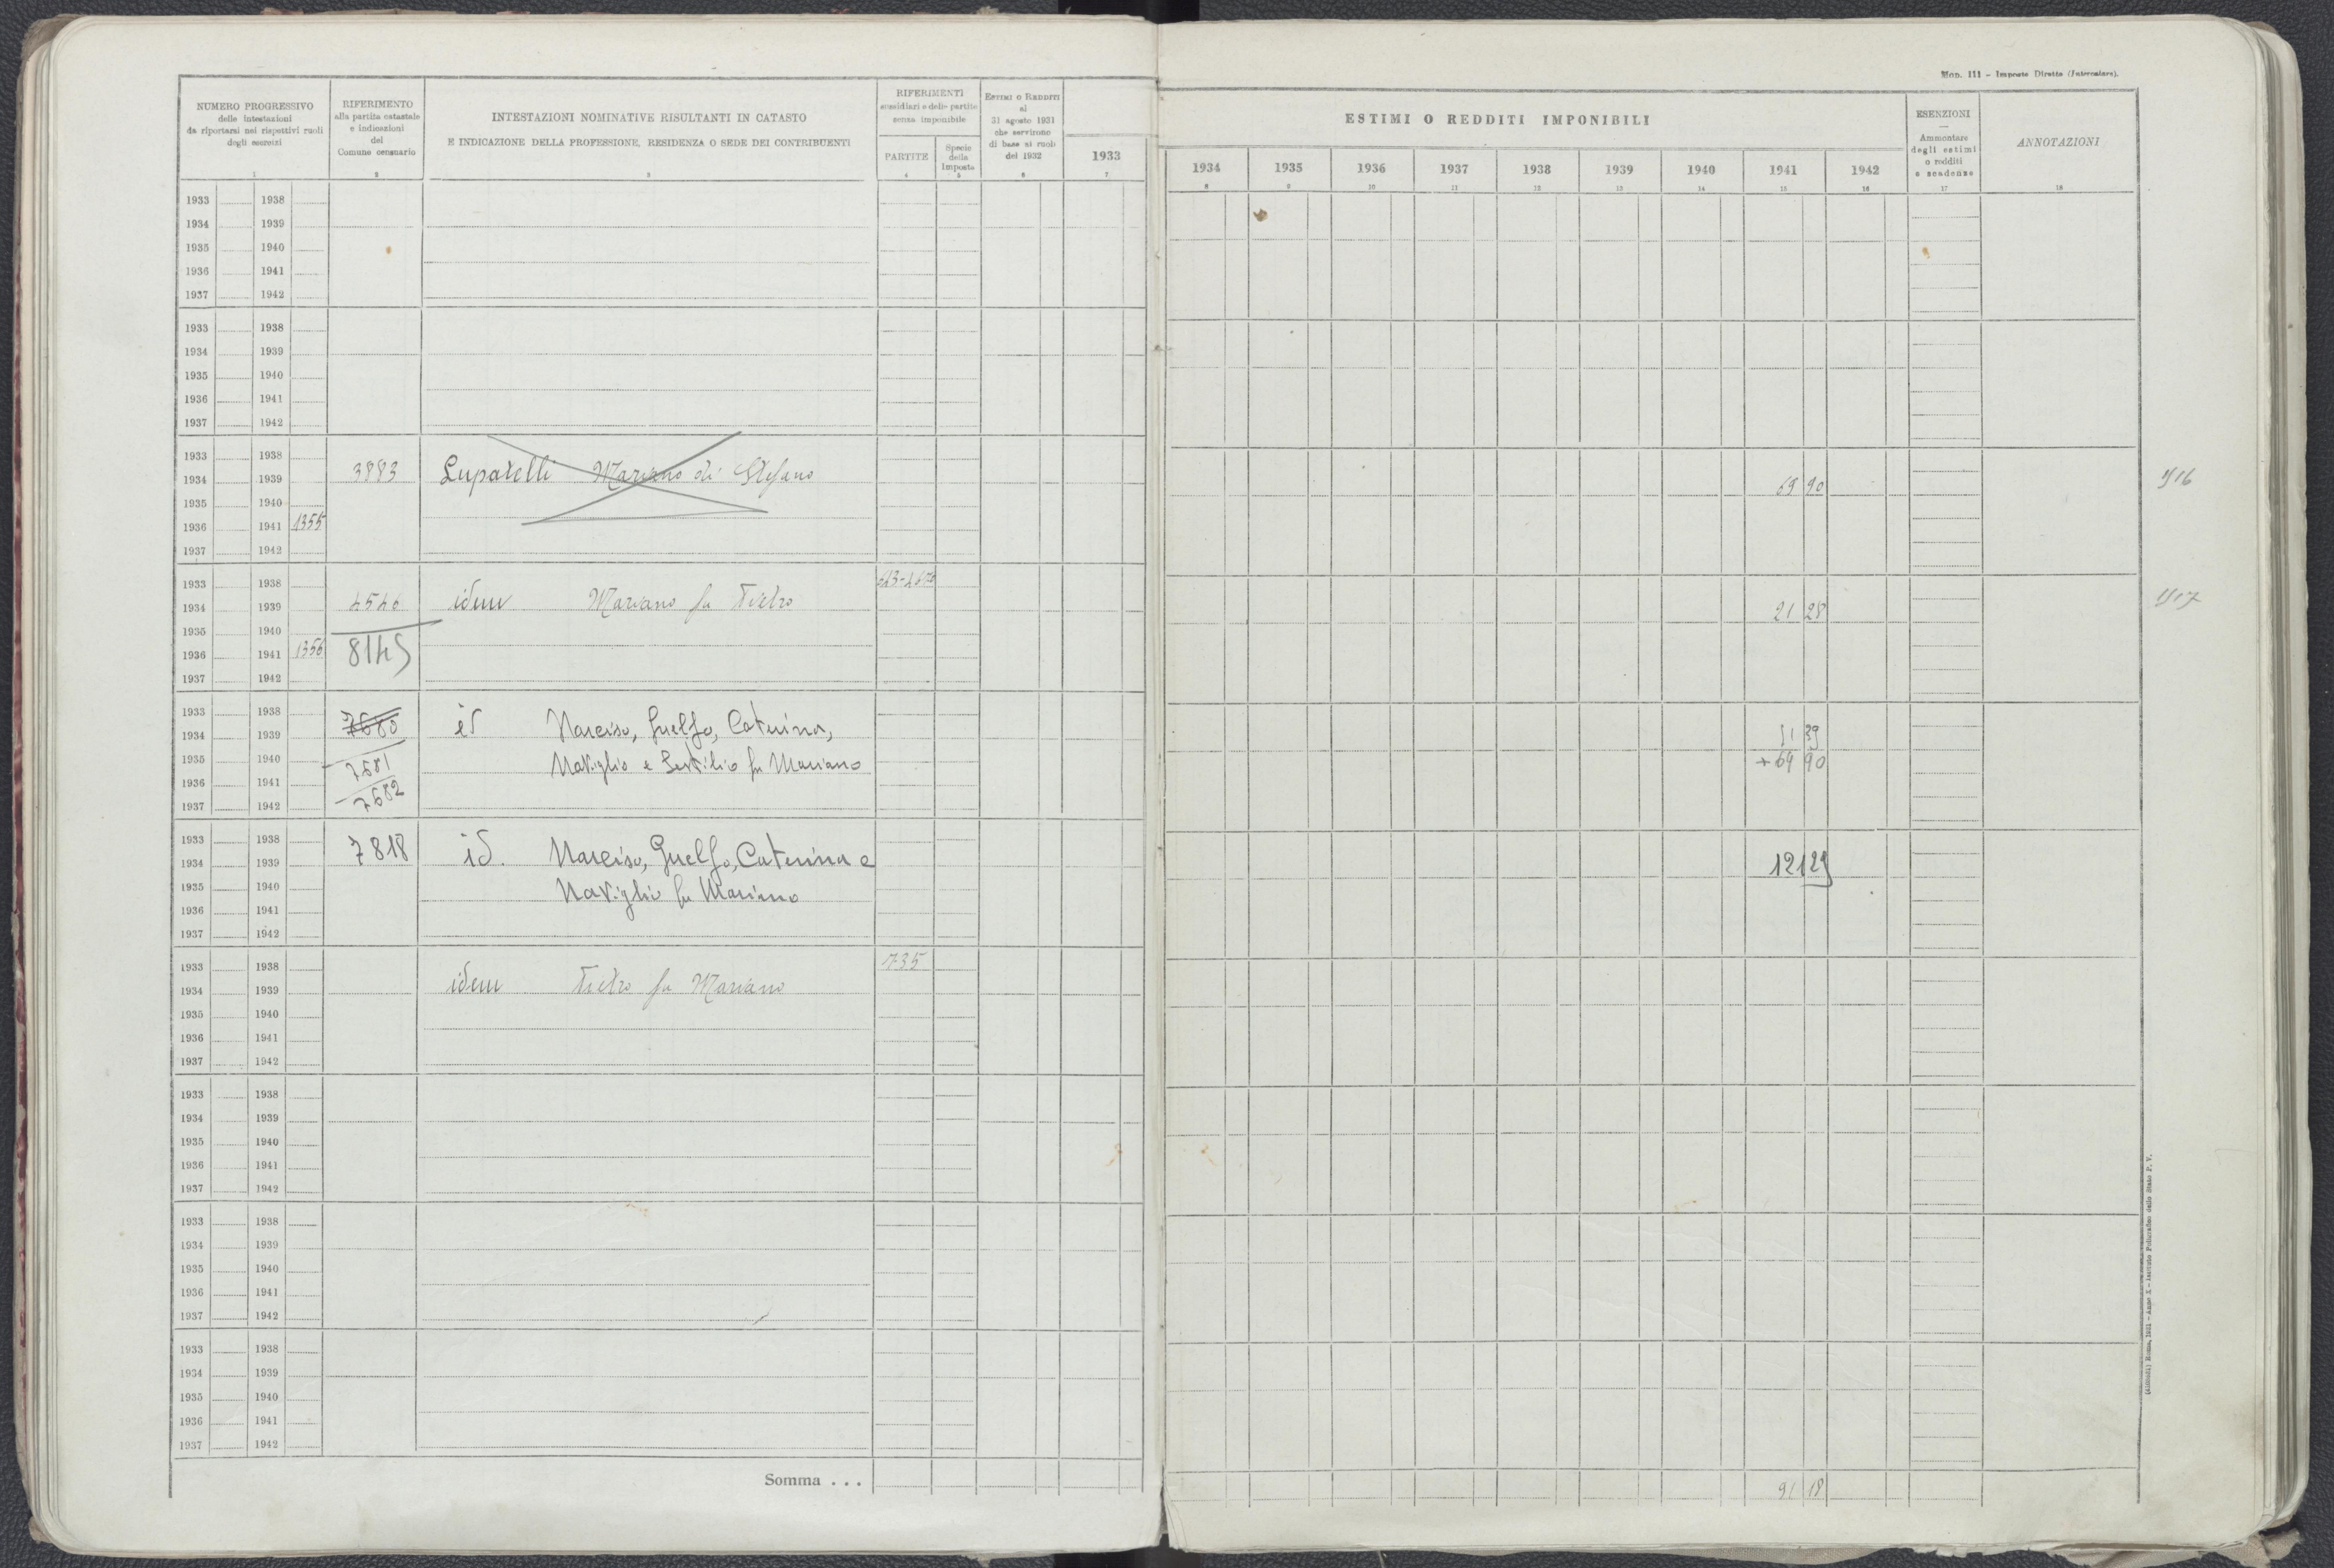 Mod. 111 – Imposte Dirette (Intercalare).
NUMERO PROGRESSIVO
delle intestazioni
da riportarsi nei rispettivi ruoli
degli esercizi
1
RIFERIMENTO
alla partita catastale
e indicazioni
del
Comune censuario
2
INTESTAZIONI NOMINATIVE RISULTANTI IN CATASTO
E INDICAZIONE DELLA PROFESSIONE, RESIDENZA O SEDE DEI CONTRIBUENTI
3
RIFERIMENTI
sussidiari e delle partite
senza imponibile
PARTITE
4
Specie
della
Imposta
5
ESTIMI O REDDITI
al
31 agosto 1931
che servirono
di base ai ruoli
del 1932
6
1933
7
ESTIMI O REDDITI IMPONIBILI
1934 1935 1936 1937 1938 1939 1940 1941 1942
8 9 10 11 12 13 14 15 16
ESENZIONI
Ammontare
degli estimi
o redditi
e scadenze
17
ANNOTAZIONI
18
1933 1938
1934 1939
1935 1940
1936 1941
1937 1942
1933 1938
1934 1939
1935 1940
1936 1941
1937 1942
1933 1938
1934 1939 3883 Lupatelli Mariano di Stefano 69 90
1935 1940
1936 1941 1355
1937 1942
1933 1938
1934 1939 4546 idem Mariano fu Pietro 21 28
1935 1940
1936 1941 1356 8145
1937 1942
1933 1938 7680
1934 1939 id Narciso, Guelfo, Caterina, 51 39
1935 1940 7681 Naviglio e Sestilio fu Mariano + 69 90
1936 1941 7682
1937 1942
1933 1938 7818
1934 1939 id. Narciso, Guelfo, Caterina e 121 29
1935 1940 Naviglio fu Mariano
1936 1941
1937 1942
1933 1938 735
1934 1939 idem Pietro fu Mariano
1935 1940
1936 1941
1937 1942
1933 1938
1934 1939
1935 1940
1936 1941
1937 1942
1933 1938
1934 1939
1935 1940
1936 1941
1937 1942
1933 1938
1934 1939
1935 1940
1936 1941
1937 1942
Somma . . . 91 18
Roma, 1931 – Anno X – Istituto Poligrafico dello Stato P. V.